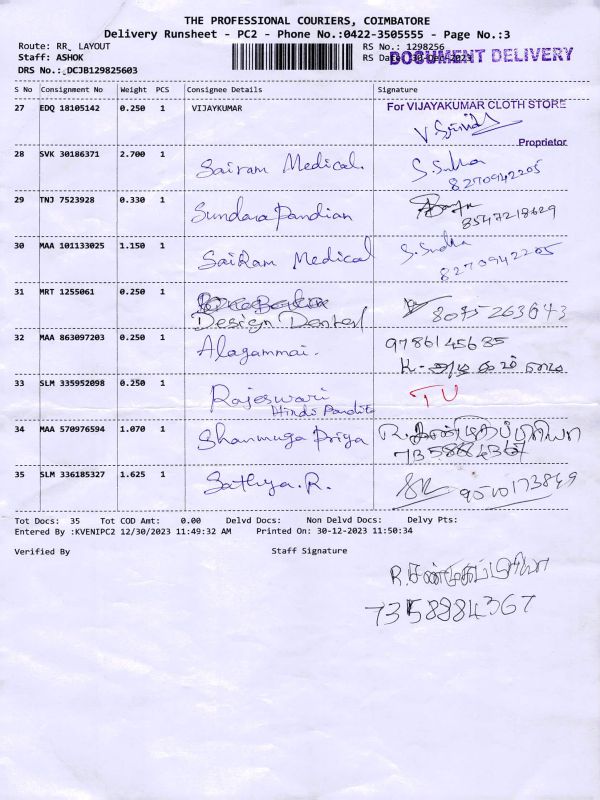 THE PROFESSIONAL COURIERS, COIMBATORE
Delivery Runsheet - PC2 - Phone No.:0422-3505555 - Page No.:3
Route: RR_ LAYOUT
RS No.: 1298256
Staff: ASHOK
RS Date: 30-Dec-2023
DOCUMENT DELIVERY
DRS No.: DCJB129825603
S No Consignment No Weight PCS Consignee Details Signature
27 EDQ 18105142 0.250 1 VIJAYKUMAR For VIJAYAKUMAR CLOTH STORE
Proprietor
28 SVK 30186371 2.700 1 Sairam Medical. S. Sudha
8270942205
29 TNJ 7523928 0.330 1 Sundara Pandian
8547218629
30 MAA 101133025 1.150 1 SaiRam Medical S. Sudha
8270942205
31 MRT 1255061 0.250 1
Design Dental 8075-263643
32 MAA 863097203 0.250 1 Alagammai. 9786145685
33 SLM 335952098 0.250 1 Rajeswari TU
Hindo Pandits
34 MAA 570976594 1.070 1 Shanmuga Priya R. சண்முகப்பிரியா
7358884367
35 SLM 336185327 1.625 1 Sathya.R. 9010173849
Tot Docs: 35 Tot COD Amt: 0.00 Delvd Docs: Non Delvd Docs: Delvy Pts:
Entered By :KVENIPC2 12/30/2023 11:49:32 AM Printed On: 30-12-2023 11:50:34
Verified By Staff Signature
R. சண்முகப்பிரியா
7358884367